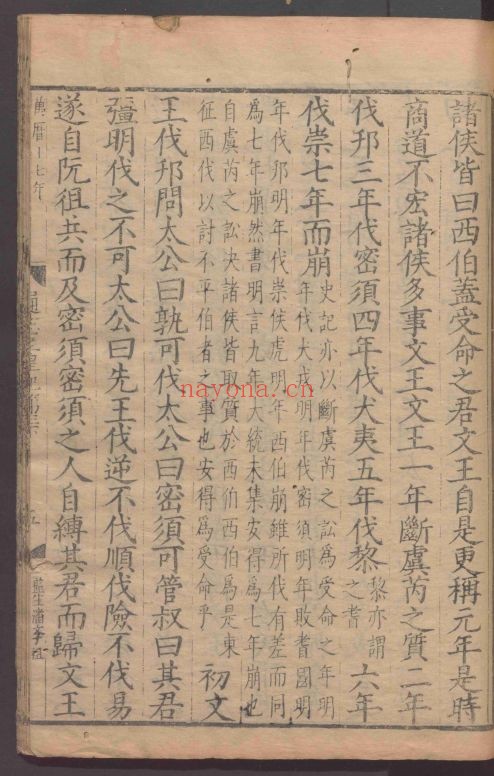 諸侯皆曰西伯蓋受命之君文王自是更稱元年是時
商道不宏諸侯多事文王一年斷虞芮之質二年
伐邘三年伐密須四年伐犬夷五年伐黎黎亦謂之耆六年
伐崇七年而崩史記亦以斷虞芮之訟為受命之年明
年伐犬戎明年伐密須明年敗耆國明
年伐邘明年伐崇侯虎明年西伯崩雖所伐有差而同
為七年崩然書明言九年大統未集安得為七年崩也
自虞芮之訟決諸侯皆取質於西伯西伯為是東
征西伐以討不平伯者之事也安得為受命乎初文
王伐邘問太公曰孰可伐太公曰密須可管叔曰其君
彊明伐之不可太公曰先王伐逆不伐順伐險不伐易
遂自阮徂共而及密須密須之人自縛其君而歸文王
萬曆十七年
五
監生潘
nayona.cn